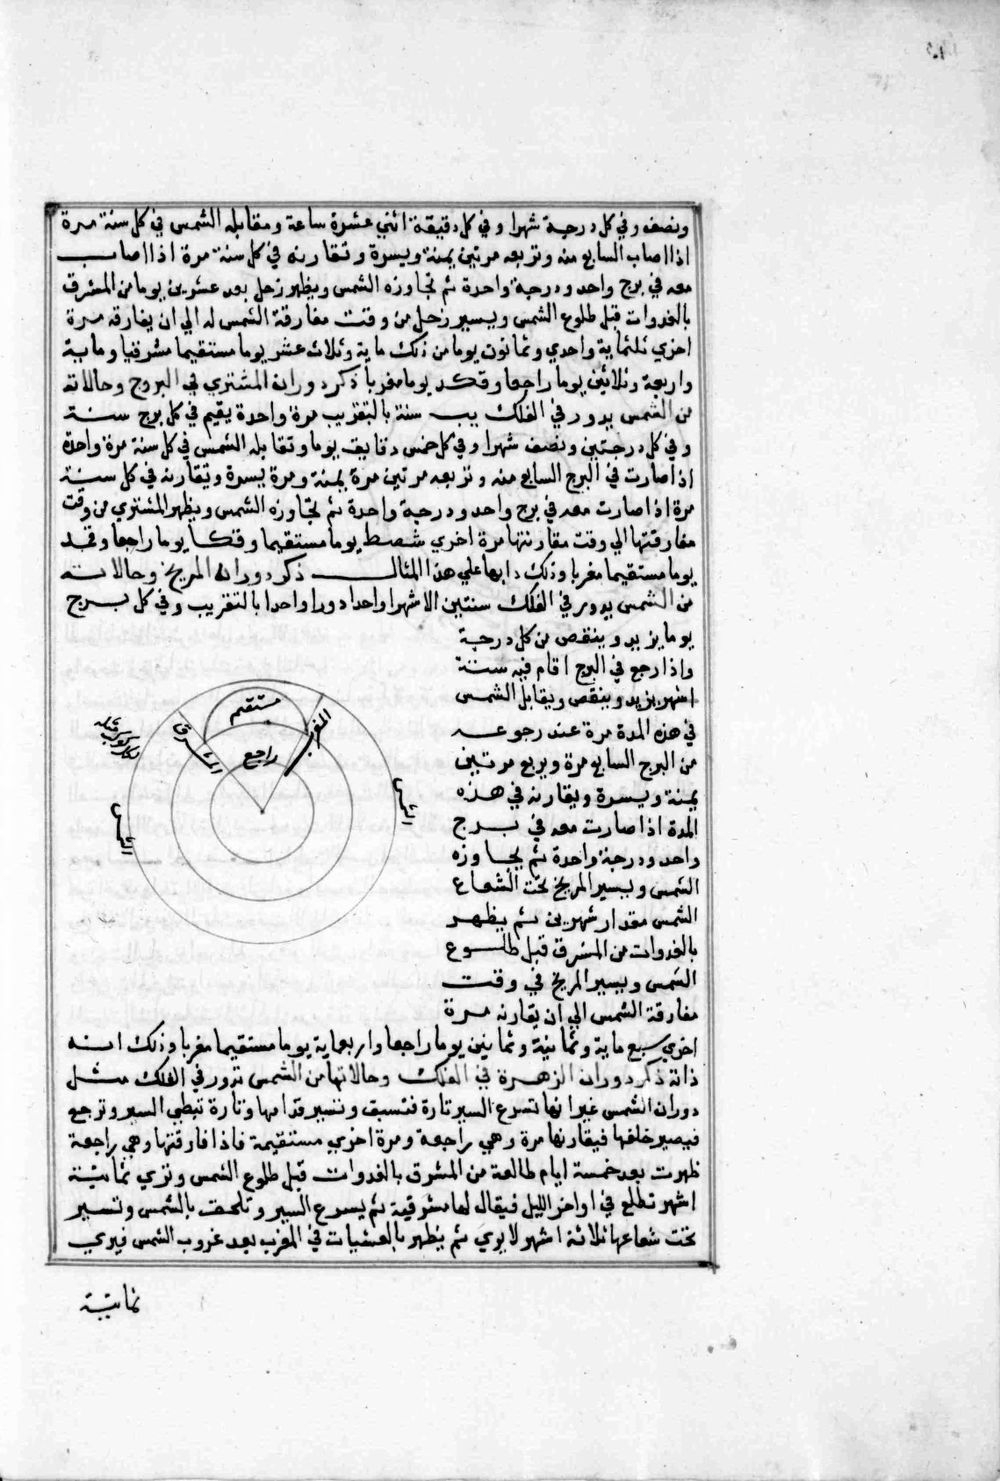 ونصف وفي كل درجة شهرا وفي كل دقيقة اثني عشرة ساعة ومقابله الشمس في كل سنة مرة
اذا اصاب السابع منه وتربعه مرتين يمنة ويسرة وتقارنه في كل سنة مرة اذا اصابت
معه في برج واحد ودرجة واحدة ثم تجاوزه الشمس ويظهر زحل بعد عشرين يوما من المشرق
بالغدوات قبل طلوع الشمس ويسير زحل من وقت مفارقة الشمس له الي ان يفارقه مرة
اخري ثلثماية واحدي وثمانون يوما من ذلك ماية وثلاث عشر يوما مستقيما مشرقيا وماية
واربعة وثلاثين يوما راجعا وقكد يوما مغربا ذكر دوران المشتري في البروج وحالاته
من الشمس يدور في الفلك يب سنة بالتقريب مرة واحدة يقيم في كل برج سنة
وفي كل درجتين ونصف شهرا وفي كل خمس دقايق يوما وتقابله الشمس في كل سنة مرة واحدة
اذا صارت في البرج السابع منه وتربعه مرتين مرة يمنة ومرة يسرة وتقارنه في كل سنة
مرة اذا صارت معه في برج واحد ودرجة واحدة ثم تجاوزه الشمس ويظهر المشتري من وقت
مفارقتها الي وقت مقارنتها مرة اخري شصط يوما مستقيما وقكا يوما راجعا وقمد
يوما مستقيما مغربا وذلك دابها علي هذا المثال ذكر دوران المريخ وحالاته
من الشمس يدور في الفلك سنتين الا شهرا واحدا دورا واحدا بالتقريب وفي كل برج
يوما يزيد وينقص من كل درجة
واذا رجع في البرج اقام فيه ستة
اشهر يزيد وينقص ويقابل الشمس
في هذه المدة مرة عند رجوعه
من البرج السابع مرة ويربع مرتين
يمنة ويسرة ويقارنه في هذه
المدة اذا صارت معه في برج
واحد ودرجة واحدة ثم يجاوزه
الشمس ويسير المريخ تحت الشعاع
الشمس مقدار شهرين ثم يظهر
بالغدوات من المشرق قبل طلوع
الشمس ويسير المريخ في وقت
مفارقة الشمس الي ان يقارنه مرة
مستقيم
المغرب
المشرق
راجع
الشمس
الشمس
اخري سبع ماية وثمانية وثمانين يوما راجعا واربعماية يوما مستقيما مغربا وذلك انه
ذاته ذكر دوران الزهرة في الفلك وحالاتها من الشمس تدور في الفلك مثل
دوران الشمس غير انها تسرع السير تارة فتسبق وتسير قدامها وتارة تبطي السير وترجع
فيصير خلفها فيقارنها مرة وهي راجعة ومرة اخري مستقيمة فاذا فارقتها وهي راجعة
ظهرت بعد خمسة ايام طالعة من المشرق بالغدوات قبل طلوع الشمس وتري ثمانية
اشهر تطلع في اواخر الليل فيقال لها مشرقية ثم يسرع السير وتلحق بالشمس وتسير
تحت شعاعها ثلاثة اشهر لا يري ثم يظهر بالعشيات في المغرب بعد غروب الشمس فيري
ثمانية